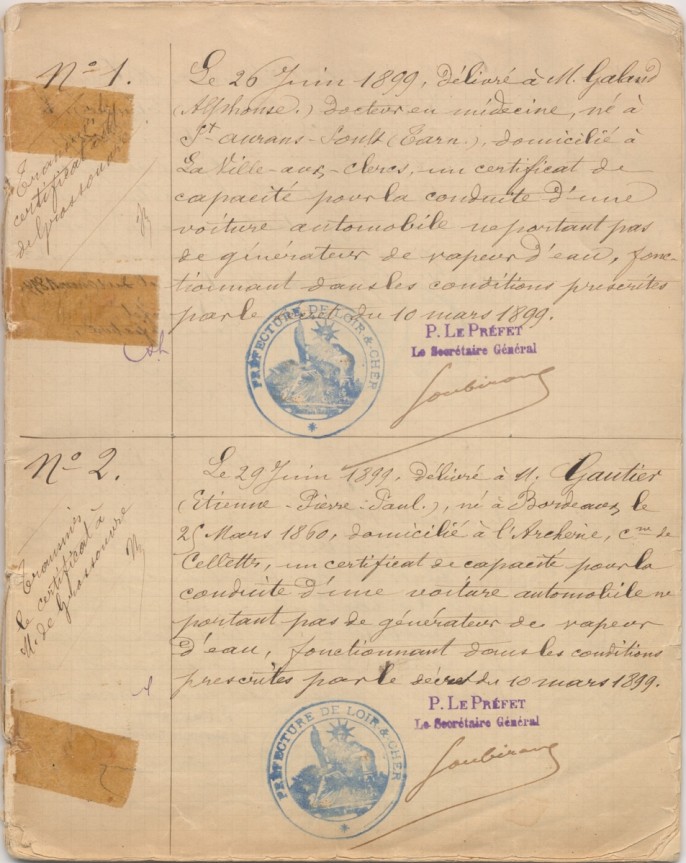 Nº 1.
Transmis
certificat
de Grossouvre
Le 26 Juin 1899, délivré à M. Galaud
(Alphonse.) docteur en médecine, né à
St aurans-Soult (Tarn.), domicilié à
La Ville-aux-clercs, un certificat de
capacité pour la conduite d'une
voiture automobile ne portant pas
de générateur de vapeur d'eau, fonc-
tionnant dans les conditions prescrites
par le du 10 mars 1899.
PRÉFECTURE DE LOIR & CHER
P. LE PRÉFET
Le Secrétaire Général
Soubirans
Nº 2.
Transmis
le certificat à
M. de Grossouvre
Le 29 Juin 1899, délivré à M. Gautier
(Etienne-Pierre-Paul.), né à Bordeaux, le
25 Mars 1860, domicilié à l'Archerie, cne de
Cellettes, un certificat de capacité pour la
conduite d'une voiture automobile ne
portant pas de générateur de vapeur
d'eau, fonctionnant dans les conditions
prescrites par le décret du 10 mars 1899.
PRÉFECTURE DE LOIR & CHER
P. LE PRÉFET
Le Secrétaire Général
Soubirans